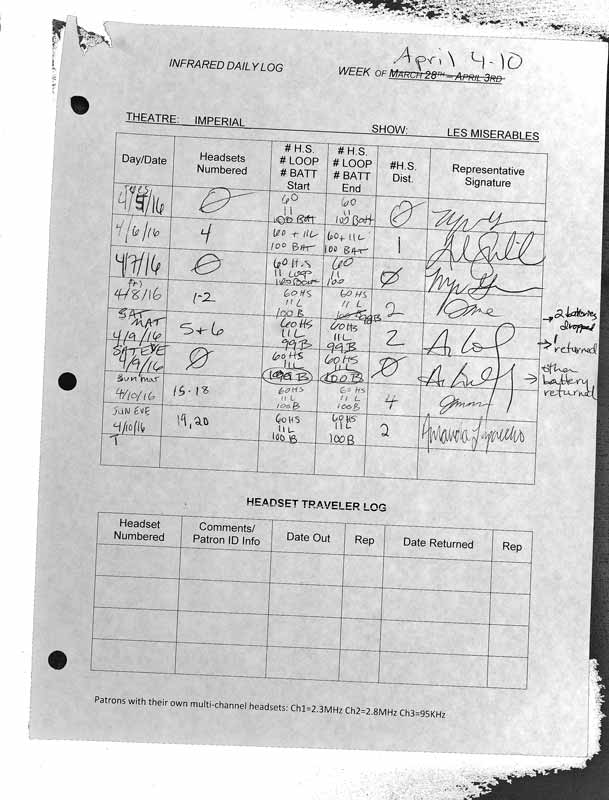 April 4-10
INFRARED DAILY LOG WEEK OF MARCH 28TH – APRIL 3RD
THEATRE: IMPERIAL SHOW: LES MISERABLES
Day/Date Headsets Numbered # H.S. # LOOP # BATT Start # H.S. # LOOP # BATT End #H.S. Dist. Representative Signature
TUES 4/5/16 Ø 60 11 100 Batt 60 11 100 Batt Ø
4/6/16 4 60 + 11L 100 BAT 60 + 11L 100 BAT 1
4/7/16 Ø 60 H.S 11 Loop 100 Batt 60 11 100 Ø
(Fr) 4/8/16 1-2 60 HS 11 L 100 B 60 HS 11 L 98B 2
→ 2 batteries dropped
SAT MAT 4/9/16 5+6 60HS 11L 99B 60HS 11L 99B 2
→ 1 returned
SAT EVE 4/9/16 Ø 60HS 11L 99B 60HS 11L 100B Ø
→ other battery returned
Sun mat 4/10/16 15-18 60HS 11L 100B 60HS 11L 100B 4
SUN EVE 4/10/16 19,20 60HS 11L 100B 60HS 11L 100B 2 Amanda
T
HEADSET TRAVELER LOG
Headset Numbered Comments/ Patron ID Info Date Out Rep Date Returned Rep
Patrons with their own multi-channel headsets: Ch1=2.3MHz Ch2=2.8MHz Ch3=95KHz